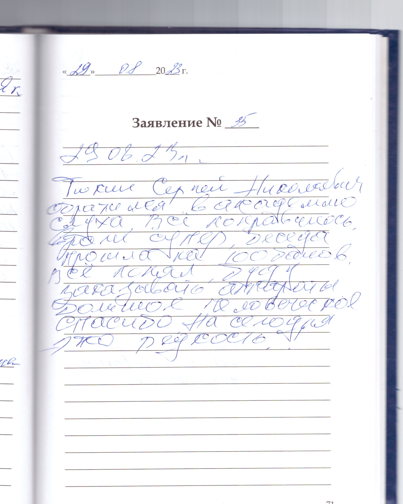 «29» 08 2023г.
Заявление № 35
29 08 23г.
Тюкин Сергей Николаевич
обратился в академию
слуха, всё понравилось,
супер, беседа
прошла на 100 баллов.
Всё понял, буду
заказывать аппараты
Большое человеческое
спасибо На сегодня
это редкость.